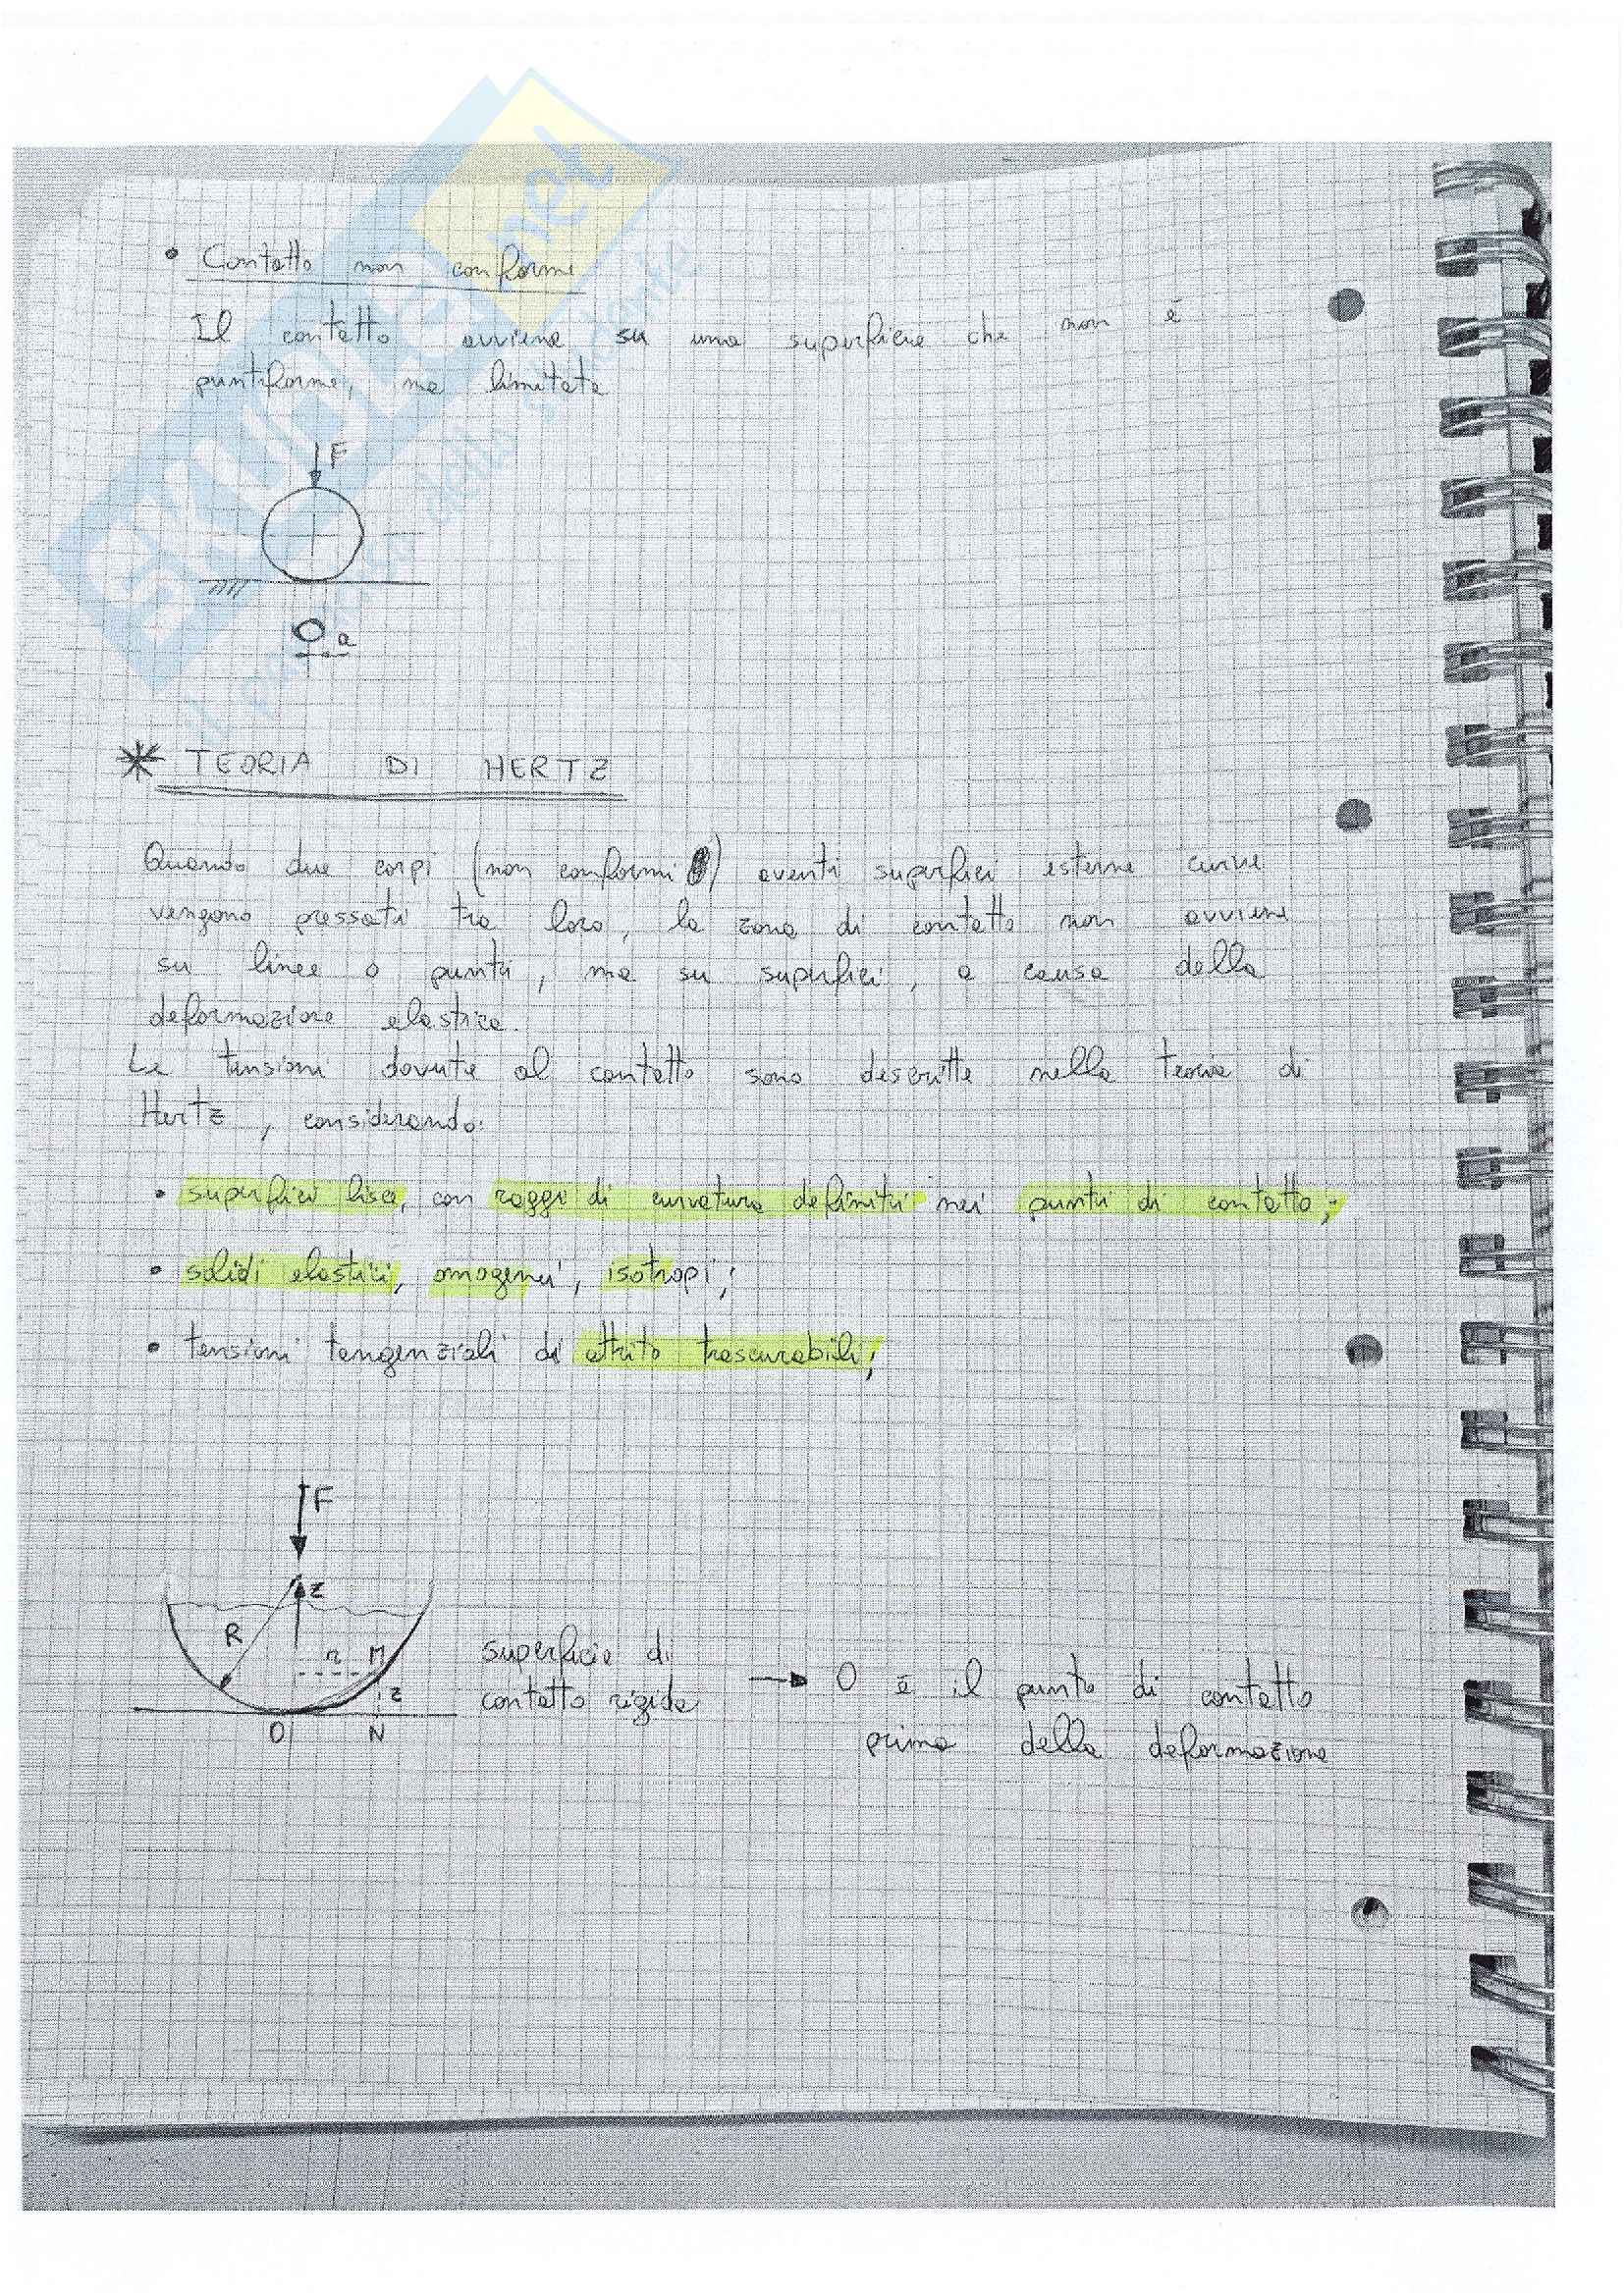 SKUOLA.net
il paradiso dello studente
• Contatto non conforme
Il contatto avviene su una superficie che non è
puntiforme, ma limitata
F
a
* TEORIA DI HERTZ
Quando due corpi (non conformi) aventi superfici esterne curve
vengono pressati tra loro, la zona di contatto non avviene
su linee o punti, ma su superfici, a causa della
deformazione elastica.
Le tensioni dovute al contatto sono descritte nella teoria di
Hertz, considerando:
• superfici lisce, con raggi di curvatura definiti nei punti di contatto;
• solidi elastici, omogenei, isotropi;
• tensioni tangenziali di attrito trascurabili;
F
z
R
r M
z
O N
superficie di
contatto rigida
→ O è il punto di contatto
prima della deformazione